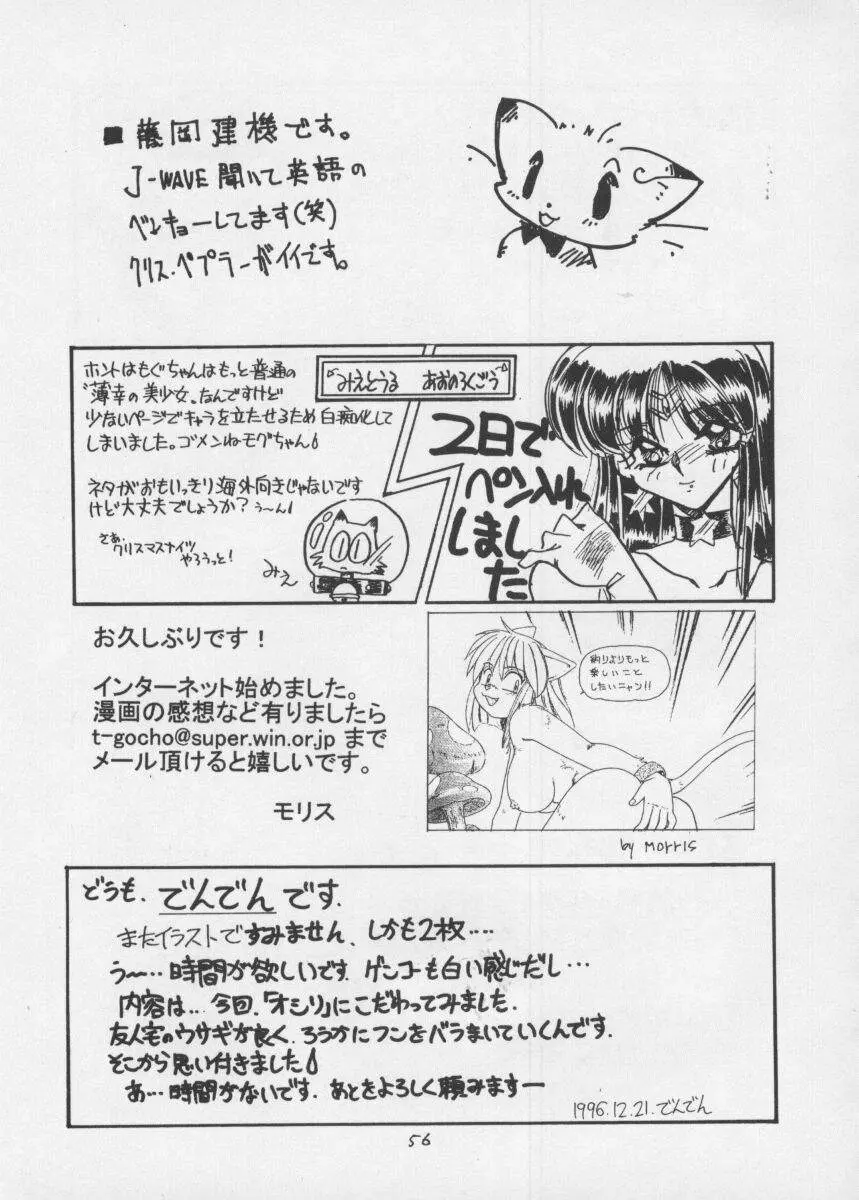 ■藤岡建機です。
J-WAVE聞いて英語の
ベンキョーしてます(笑)
クリス・ペプラーがイイです。
ホントはもぐちゃんはもっと普通の
〝薄幸の美少女〟なんですけど
少ないページでキャラを立たせるため白痴化して
しまいました。ゴメンねモグちゃん
ネタがおもいっきり海外向きじゃないです
けど大丈夫でしょうか?う〜ん
さあ、
クリスマスナイツ
やろうっと!
みえ
みえとうる あおのろくごう
2日で
ペン入れ
しまし
た
お久しぶりです!
インターネット始めました。
漫画の感想など有りましたら
t-gocho@super.win.or.jp まで
メール頂けると嬉しいです。
モリス
釣りよりもっと
楽しいこと
したいニャン!!
by Morris
どうも、でんでんです.
またイラストですみません、しかも2枚····
う〜‥‥時間が欲しいです ゲンコーも白い感じだし…
内容は... 今回、「オシリ」にこだわってみました.
友人宅のウサギが良く、ろうかにフンをバラまいていくんです.
そこから思い付きました
あ…時間がないです. あとをよろしく頼みますー
1996.12.21.でんでん
56